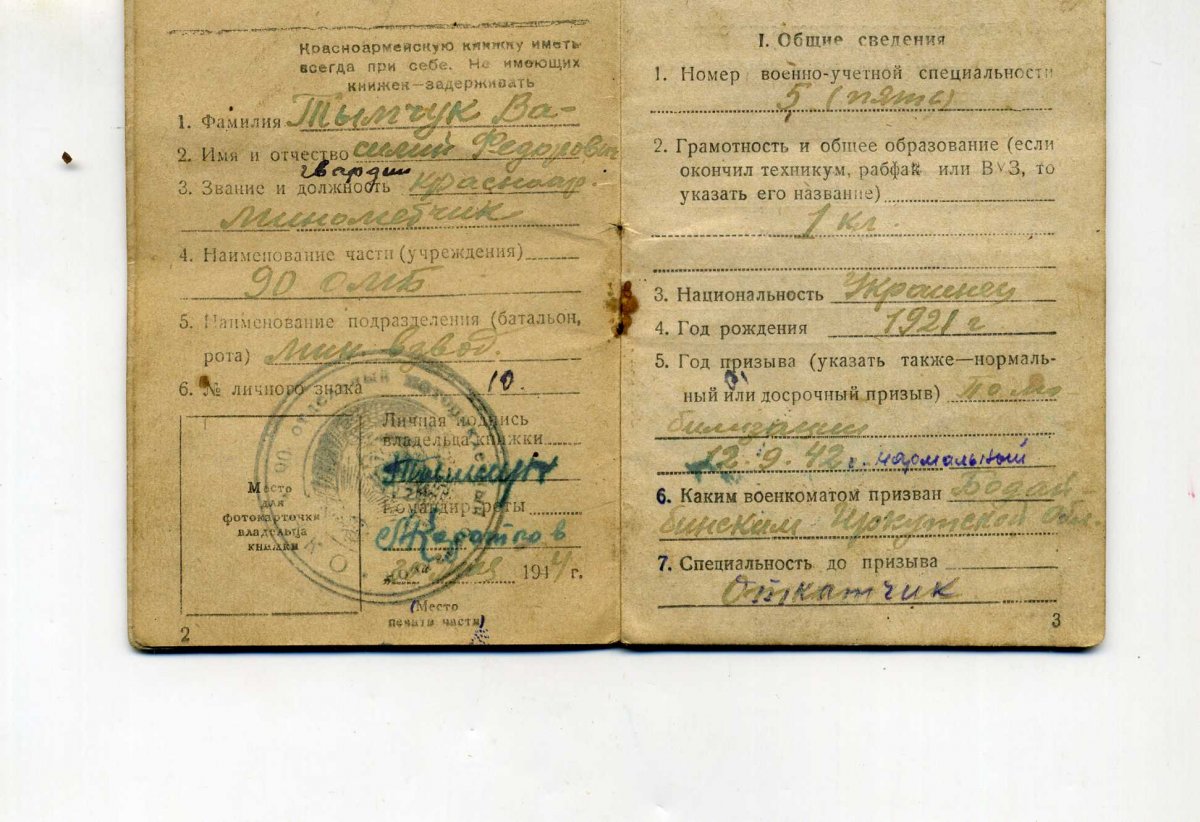 Красноармейскую книжку иметь
всегда при себе. Не имеющих
книжек—задерживать
1. Фамилия Тымчук Ва-
2. Имя и отчество силий Федорович
гвардии
3. Звание и должность красноар.
минометчик
4. Наименование части (учреждения)
90 омб
5. Наименование подразделения (батальон,
рота) мин. взвод.
6. № личного знака 10.
Место
для
фотокарточки
владельца
книжки
Личная подпись
владельца книжки
Тымчук
Командир роты
194 4 г.
(Место
печати части)
2
I. Общие сведения
1. Номер военно-учетной специальности
5 (пять)
2. Грамотность и общее образование (если
окончил техникум, рабфак или ВУЗ, то
указать его название)
1 кл.
3. Национальность Украинец
4. Год рождения 1921 г
5. Год призыва (указать также—нормаль-
ный или досрочный призыв) по мо
билизации
12.9.42 г. нормальный
6. Каким военкоматом призван Бодай
бинским Иркутской Обл.
7. Специальность до призыва
Откатчик
3